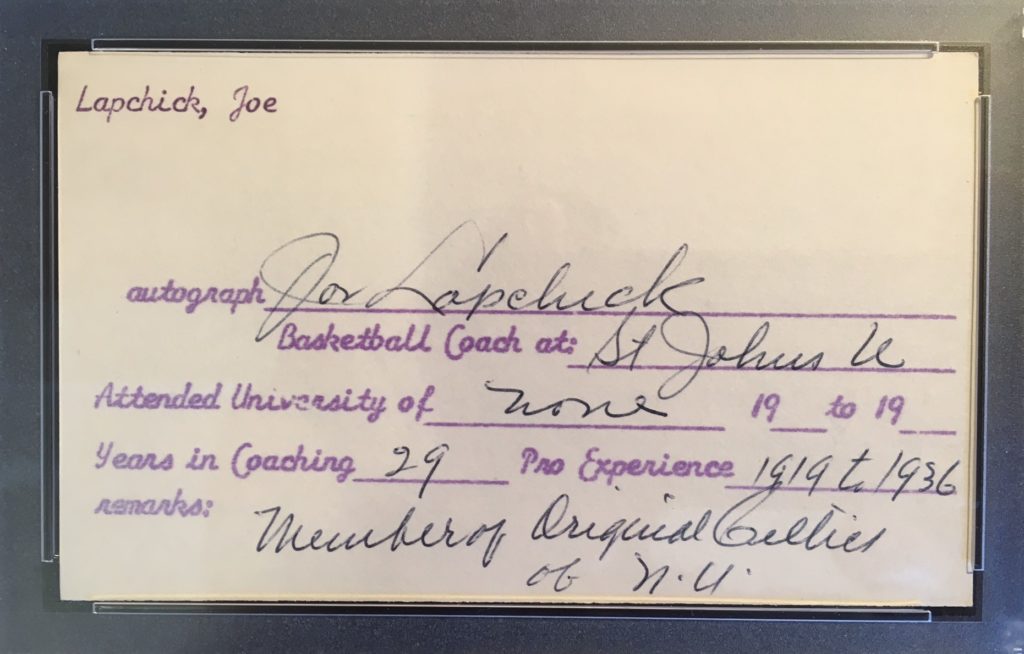 Lapchick, Joe
autograph Joe Lapchick
Basketball Coach at: St Johns U
Attended University of none 19__ to 19__
Years in Coaching 29 Pro Experience 1919 to 1936
remarks:
Member of Original Celtics
of N.Y.